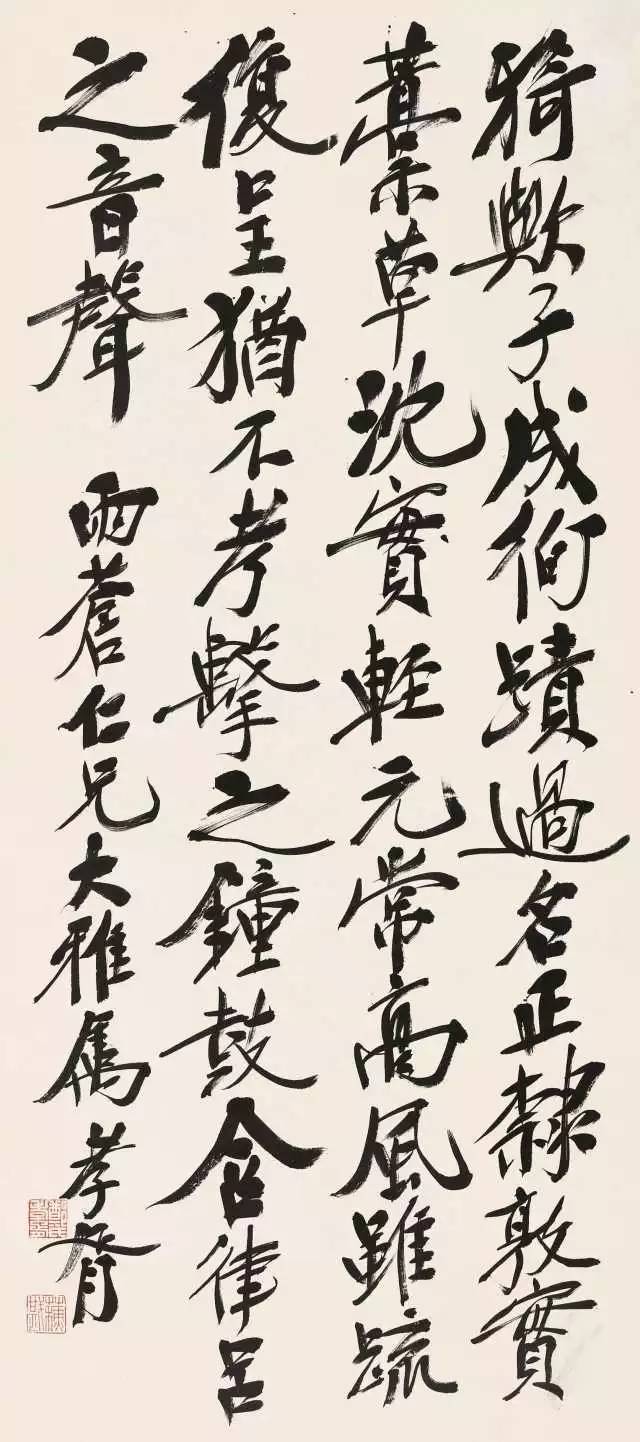 猗歟子成徇蹟過名正隸敦實
藁草沈實輕元常高風雖疏
復呈猶不考擊之鐘鼓含律呂
之音聲 雨蒼仁兄大雅屬 孝胥
蘇戡